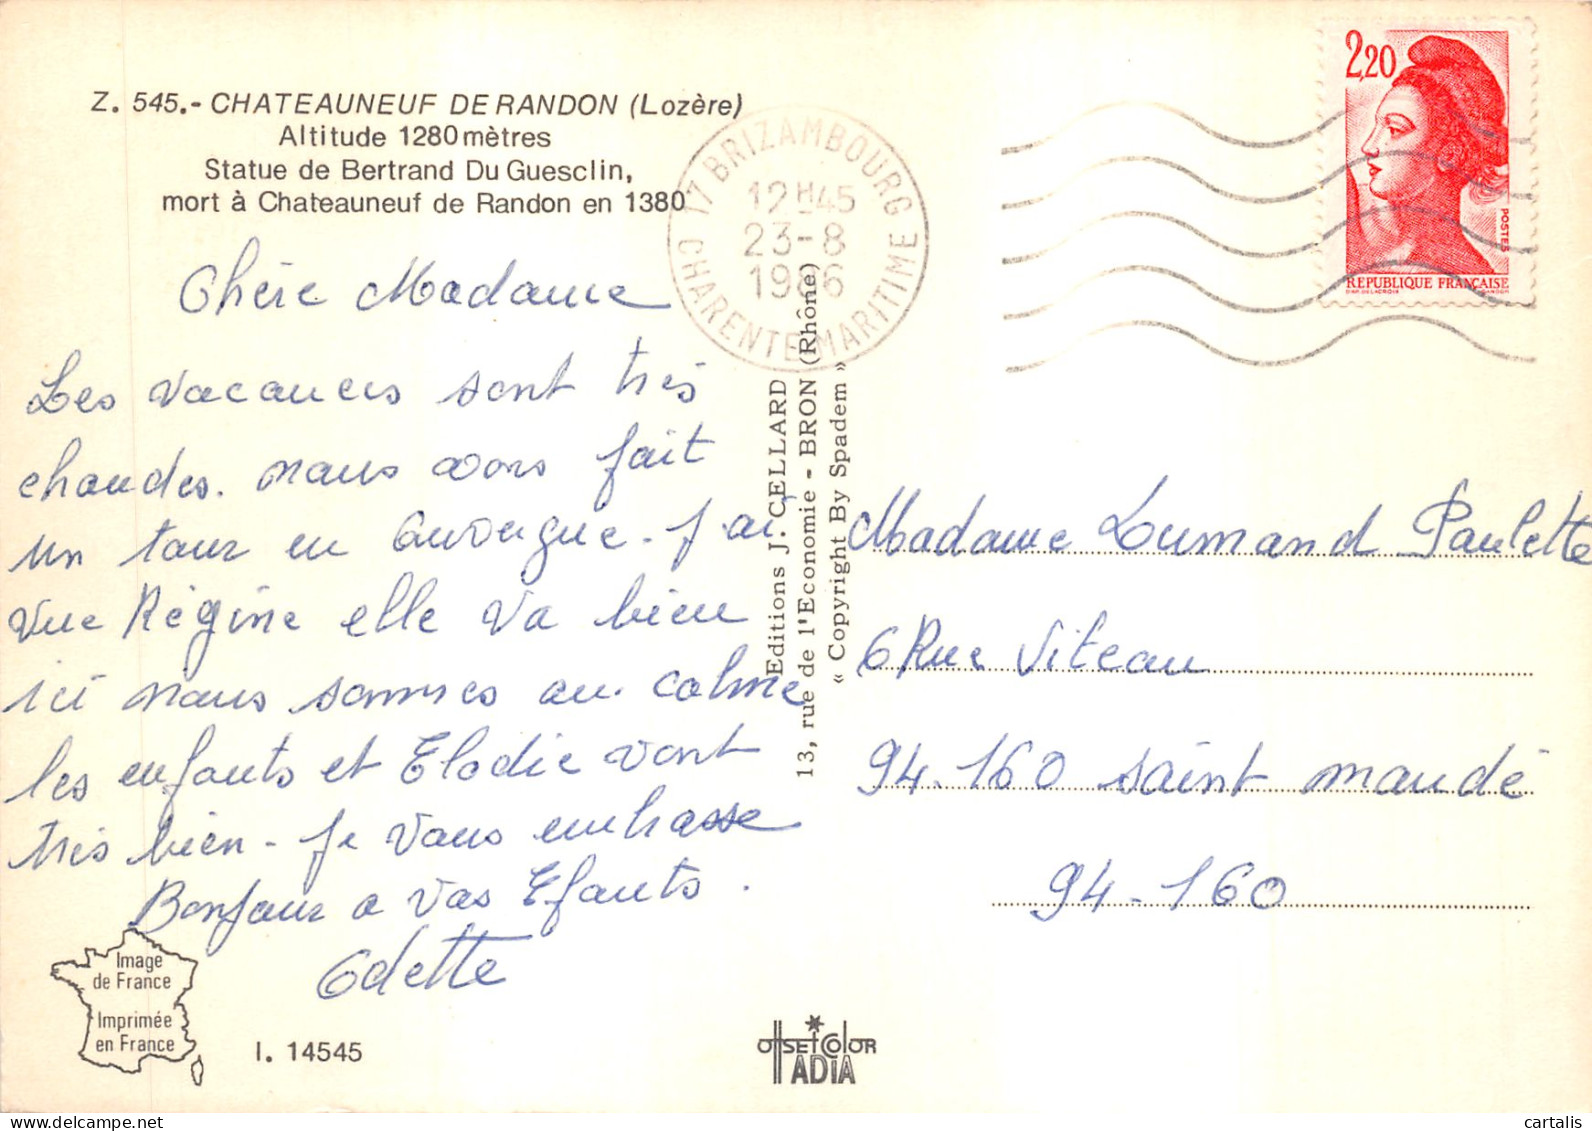 Z. 545.- CHATEAUNEUF DE RANDON (Lozère)
Altitude 1280 mètres
Statue de Bertrand Du Guesclin,
mort à Chateauneuf de Randon en 1380
17 BRIZAMBOURG
12H45
23-8
1986
CHARENTE MARITIME
2,20
POSTES
REPUBLIQUE FRANÇAISE
Chère Madame
Les vacances sont très
chaudes. nous avons fait
un tour en Auvergne. J'ai
vue Régine elle va bien
ici nous sommes au calme
les enfants et Elodie vont
très bien - Je vous embrasse
Bonjour a vos Efants.
Odette
Editions J. CELLARD
13, rue de l'Economie - BRON (Rhône)
« Copyright By Spadem »
Madame Lumand Paulette
6 Rue Viteau
94.160 saint mandé
94-160
Image
de France
Imprimée
en France
I. 14545
OffSEt COlOR
IADIA
delcampe.net
cartalis